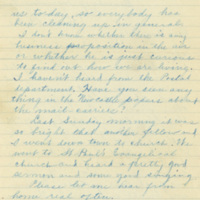 us to-day, so everybody has
been cleaning up in general.
I don't know whether there is any
business proposition in the air
or whether he is just curious
to send out how we are living.
I haven't heard from the Postal
department. Have you seen any
thing in the papers about
the mail service?
Last Sunday morning it was
so bright that another fellow and
I went down town to church. We
went to St. Paul's Evangelical
church and heard a pretty good
sermon and some good singing.
Please let me hear from
home real often.